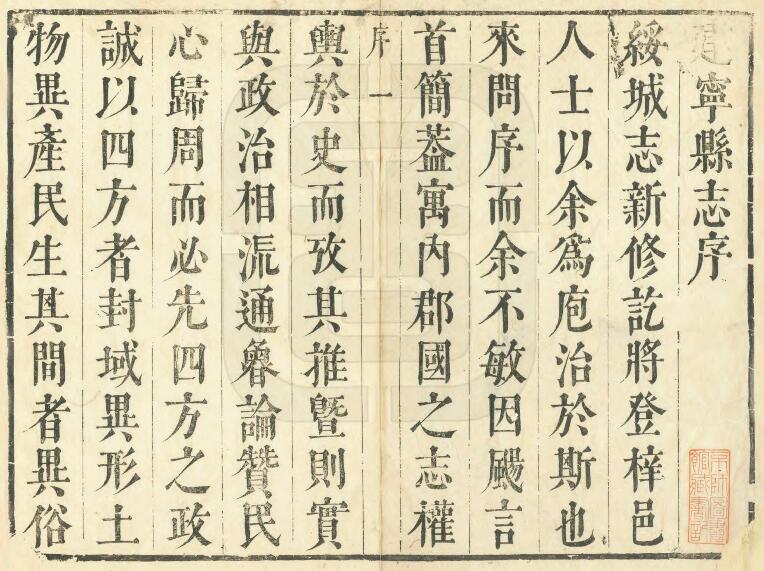 建寧縣志序
綏城志新修訖將登梓邑
人士以余為庖治於斯也
來問序而余不敏因颺言
首簡葢寓內郡國之志權
序一
輿於史而攷其推暨則實
與政治相㳅通魯論贊民
心歸周而必先四方之政
誠以四方者封域異形土
物異產民生其間者異俗
京師圖書館藏書印